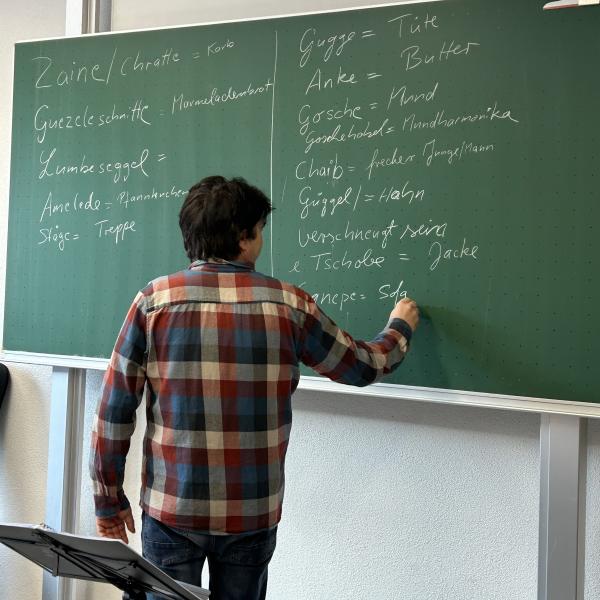 Zaine/Chratte = Korb
Guezeleschnitte = Marmeladenbrot
Lumbeseggel =
Amelede = Pfannkuchen
Stäge = Treppe
Gugge = Tüte
Anke = Butter
Gosche = Mund
Goschehobel = Mundharmonika
Chaib = frecher Junge/Mann
Güggel/ = Hahn
verschneugt seira
e Tschobe = Jacke
= Sofa